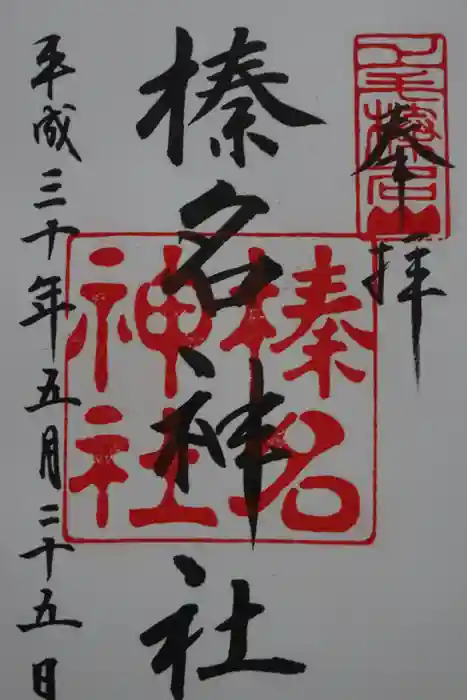 奉拝
上毛榛名山
榛名神社
榛名神社
平成三十年五月二十五日